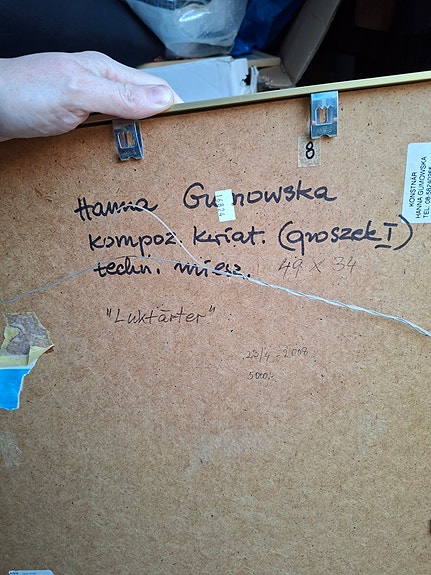 8
KONSTNÄR
HANNA GUMOWSKA
TEL: 08-
Hanna Gumowska
kompoz. kwiat. (groszek I)
techn. miesz. 49 x 34
"Luktärter"
23/4 - 2008
5000:-